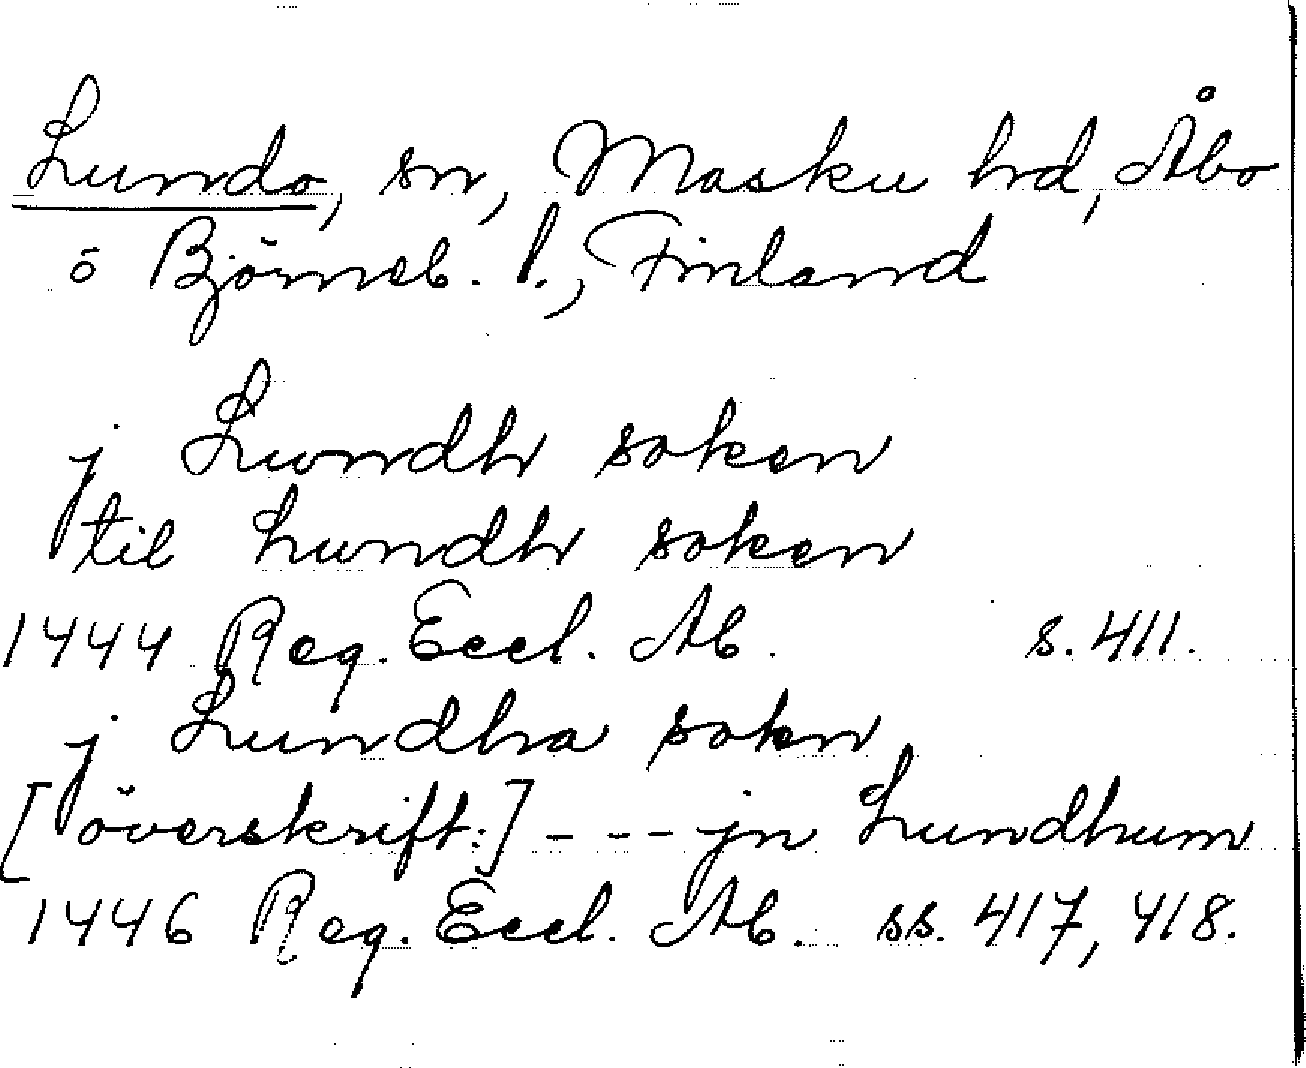 Lundo, sn, Masku hd, Åbo
o Björneb. l., Finland
j Lwndh soken
til lwndh soken
1444 Reg. Eccl. Ab. s. 411.
j Lundha sokn
[överskrift:] - - - jn Lundhum
1446 Reg. Eccl. Ab. ss. 417, 418.